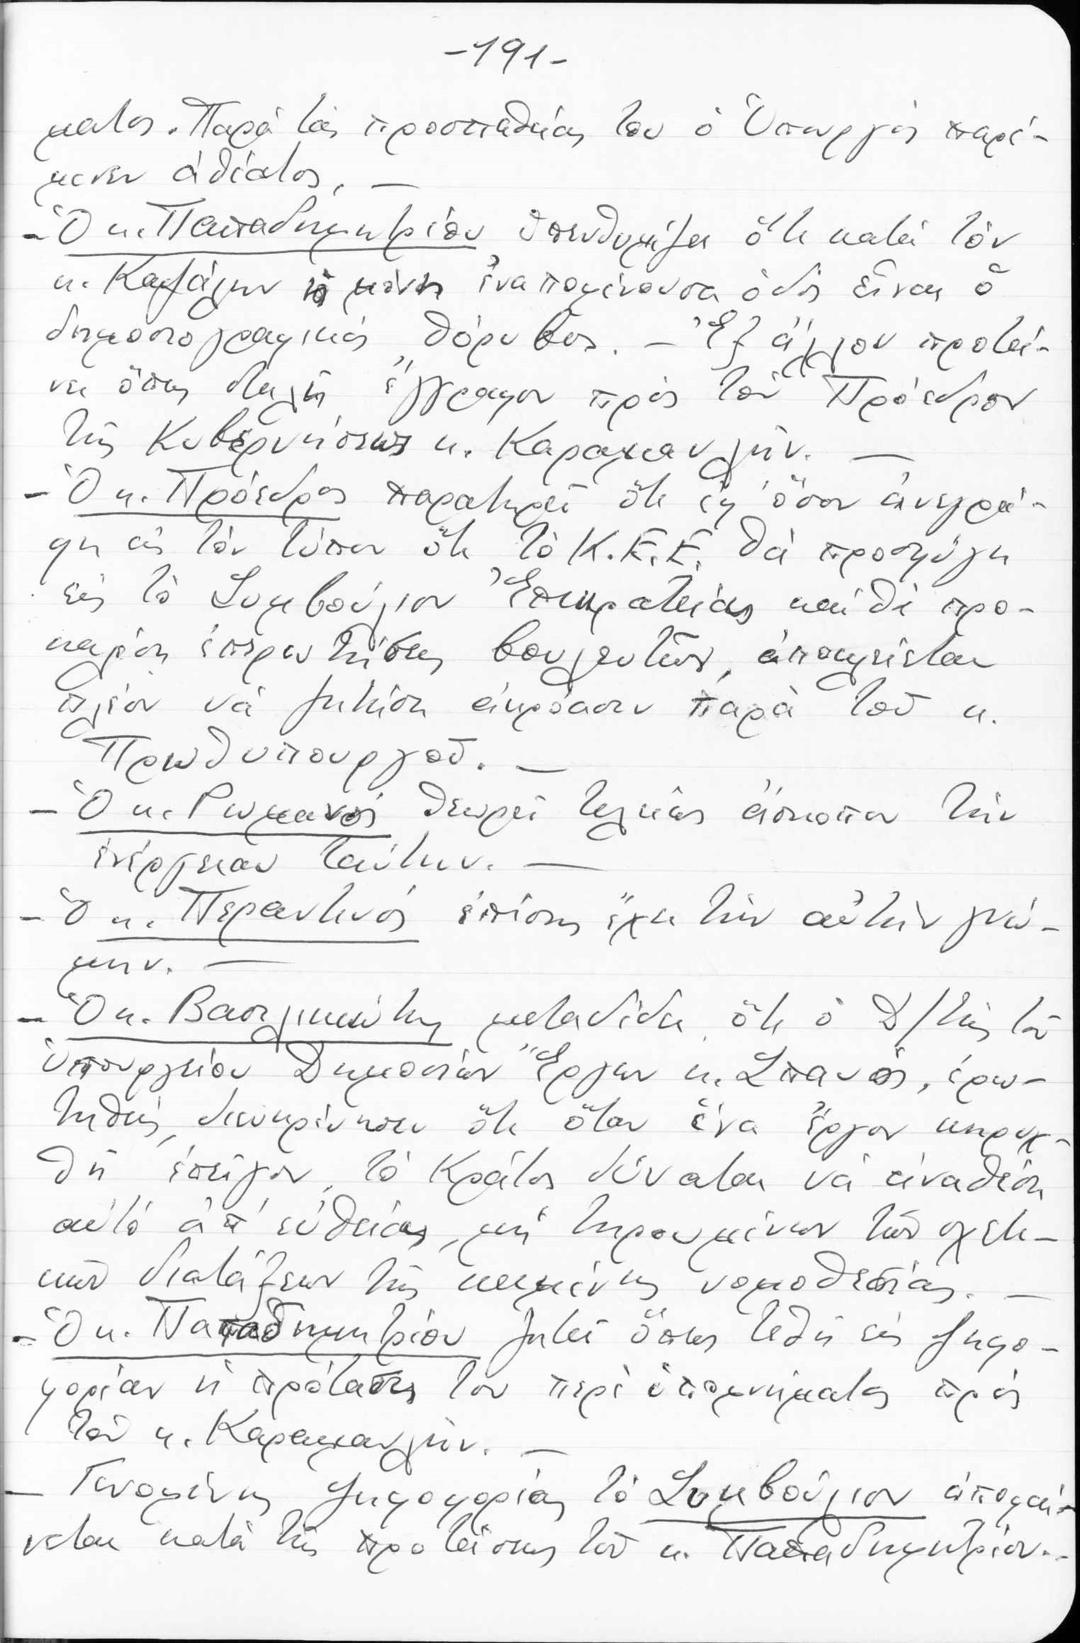 -191-
ματος. Παρά τάς προσπαθείας του ὁ Ὑπουργός παρέ-
μεινεν ἀθέατος. —
- Ὁ κ. Παπαδημητρίου ὑπενθυμίζει ὅτι κατά τόν
κ. Καψάλην ἡ μόνη ἐναπομένουσα ὁδός εἶναι ὁ
δημοσιογραφικός θόρυβος. - Ἐξ ἄλλου προτεί-
νει ὅπως σταλῆ ἔγγραφον πρός τόν Πρόεδρον
τῆς Κυβερνήσεως κ. Καραμανλῆν. —
- Ὁ κ. Πρόεδρος παρατηρεῖ ὅτι ἐφ' ὅσον ἀνεγρά-
φη εἰς τόν τύπον ὅτι τό Κ.Ε.Ε. θά προσφύγη
εἰς τό Συμβούλιον Ἐπικρατείας καί θά προ-
καλέση ἐπερωτήσεις βουλευτῶν, ἀποκλείεται
πλέον νά ζητήση ἀκρόασιν παρά τοῦ κ.
Πρωθυπουργοῦ. —
- Ὁ κ. Ρωμανός θεωρεῖ τελείως ἄσκοπον τήν
ἐνέργειαν ταύτην. —
- Ὁ κ. Περαντινός ἐπίσης ἔχει τήν αὐτήν γνώ-
μην. —
- Ὁ κ. Βασιλικιώτης μεταδίδει ὅτι ὁ Δ/τής τοῦ
ὑπουργείου Δημοσίων Ἔργων κ. Σπανός, ἐρω-
τηθείς, διευκρίνησεν ὅτι ὅταν ἕνα ἔργον κηρυχ-
θῆ ἐπεῖγον, τό Κράτος δύναται νά ἀναθέση
αὐτό ἀπ' εὐθείας, μή τηρουμένων τῶν σχετι-
κῶν διατάξεων τῆς κειμένης νομοθεσίας. —
- Ὁ κ. Παπαδημητρίου ζητεῖ ὅπως τεθῆ εἰς ψηφο-
φορίαν ἡ πρότασις του περί ὑπομνήματος πρός
τόν κ. Καραμανλῆν. —
- Γενομένης ψηφοφορίας τό Συμβούλιον ἀποφαί-
νεται κατά τῆς προτάσεως τοῦ κ. Παπαδημητρίου.-